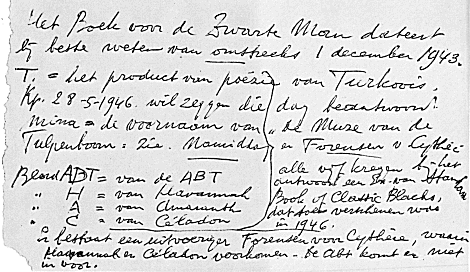 Het Boek voor de Zwarte Man dateert
bij beste weten van omstreeks 1 december 1943.
T. = het product van poëzie van Turkoois.
Kp. 28-5-1946. wil zeggen die dag beantwoord.
Mina = de voornaam van "de Muze van de
Tulpenboom: zie. Mamidha en Forensen v Cythère
alle vijf kregen bij het
Beoord ABT = van de ABT antwoord een Ex. van
" H = van Havannah Book of Classic Blacks,
" A = van Amaranth dat toen verschenen was
" C = van Céladon in 1946.
Er bestaat een uitvoeriger Forensen voor Cythère, waarin
Havannah en Céladon voorkomen. De Abt komt er niet
in voor.